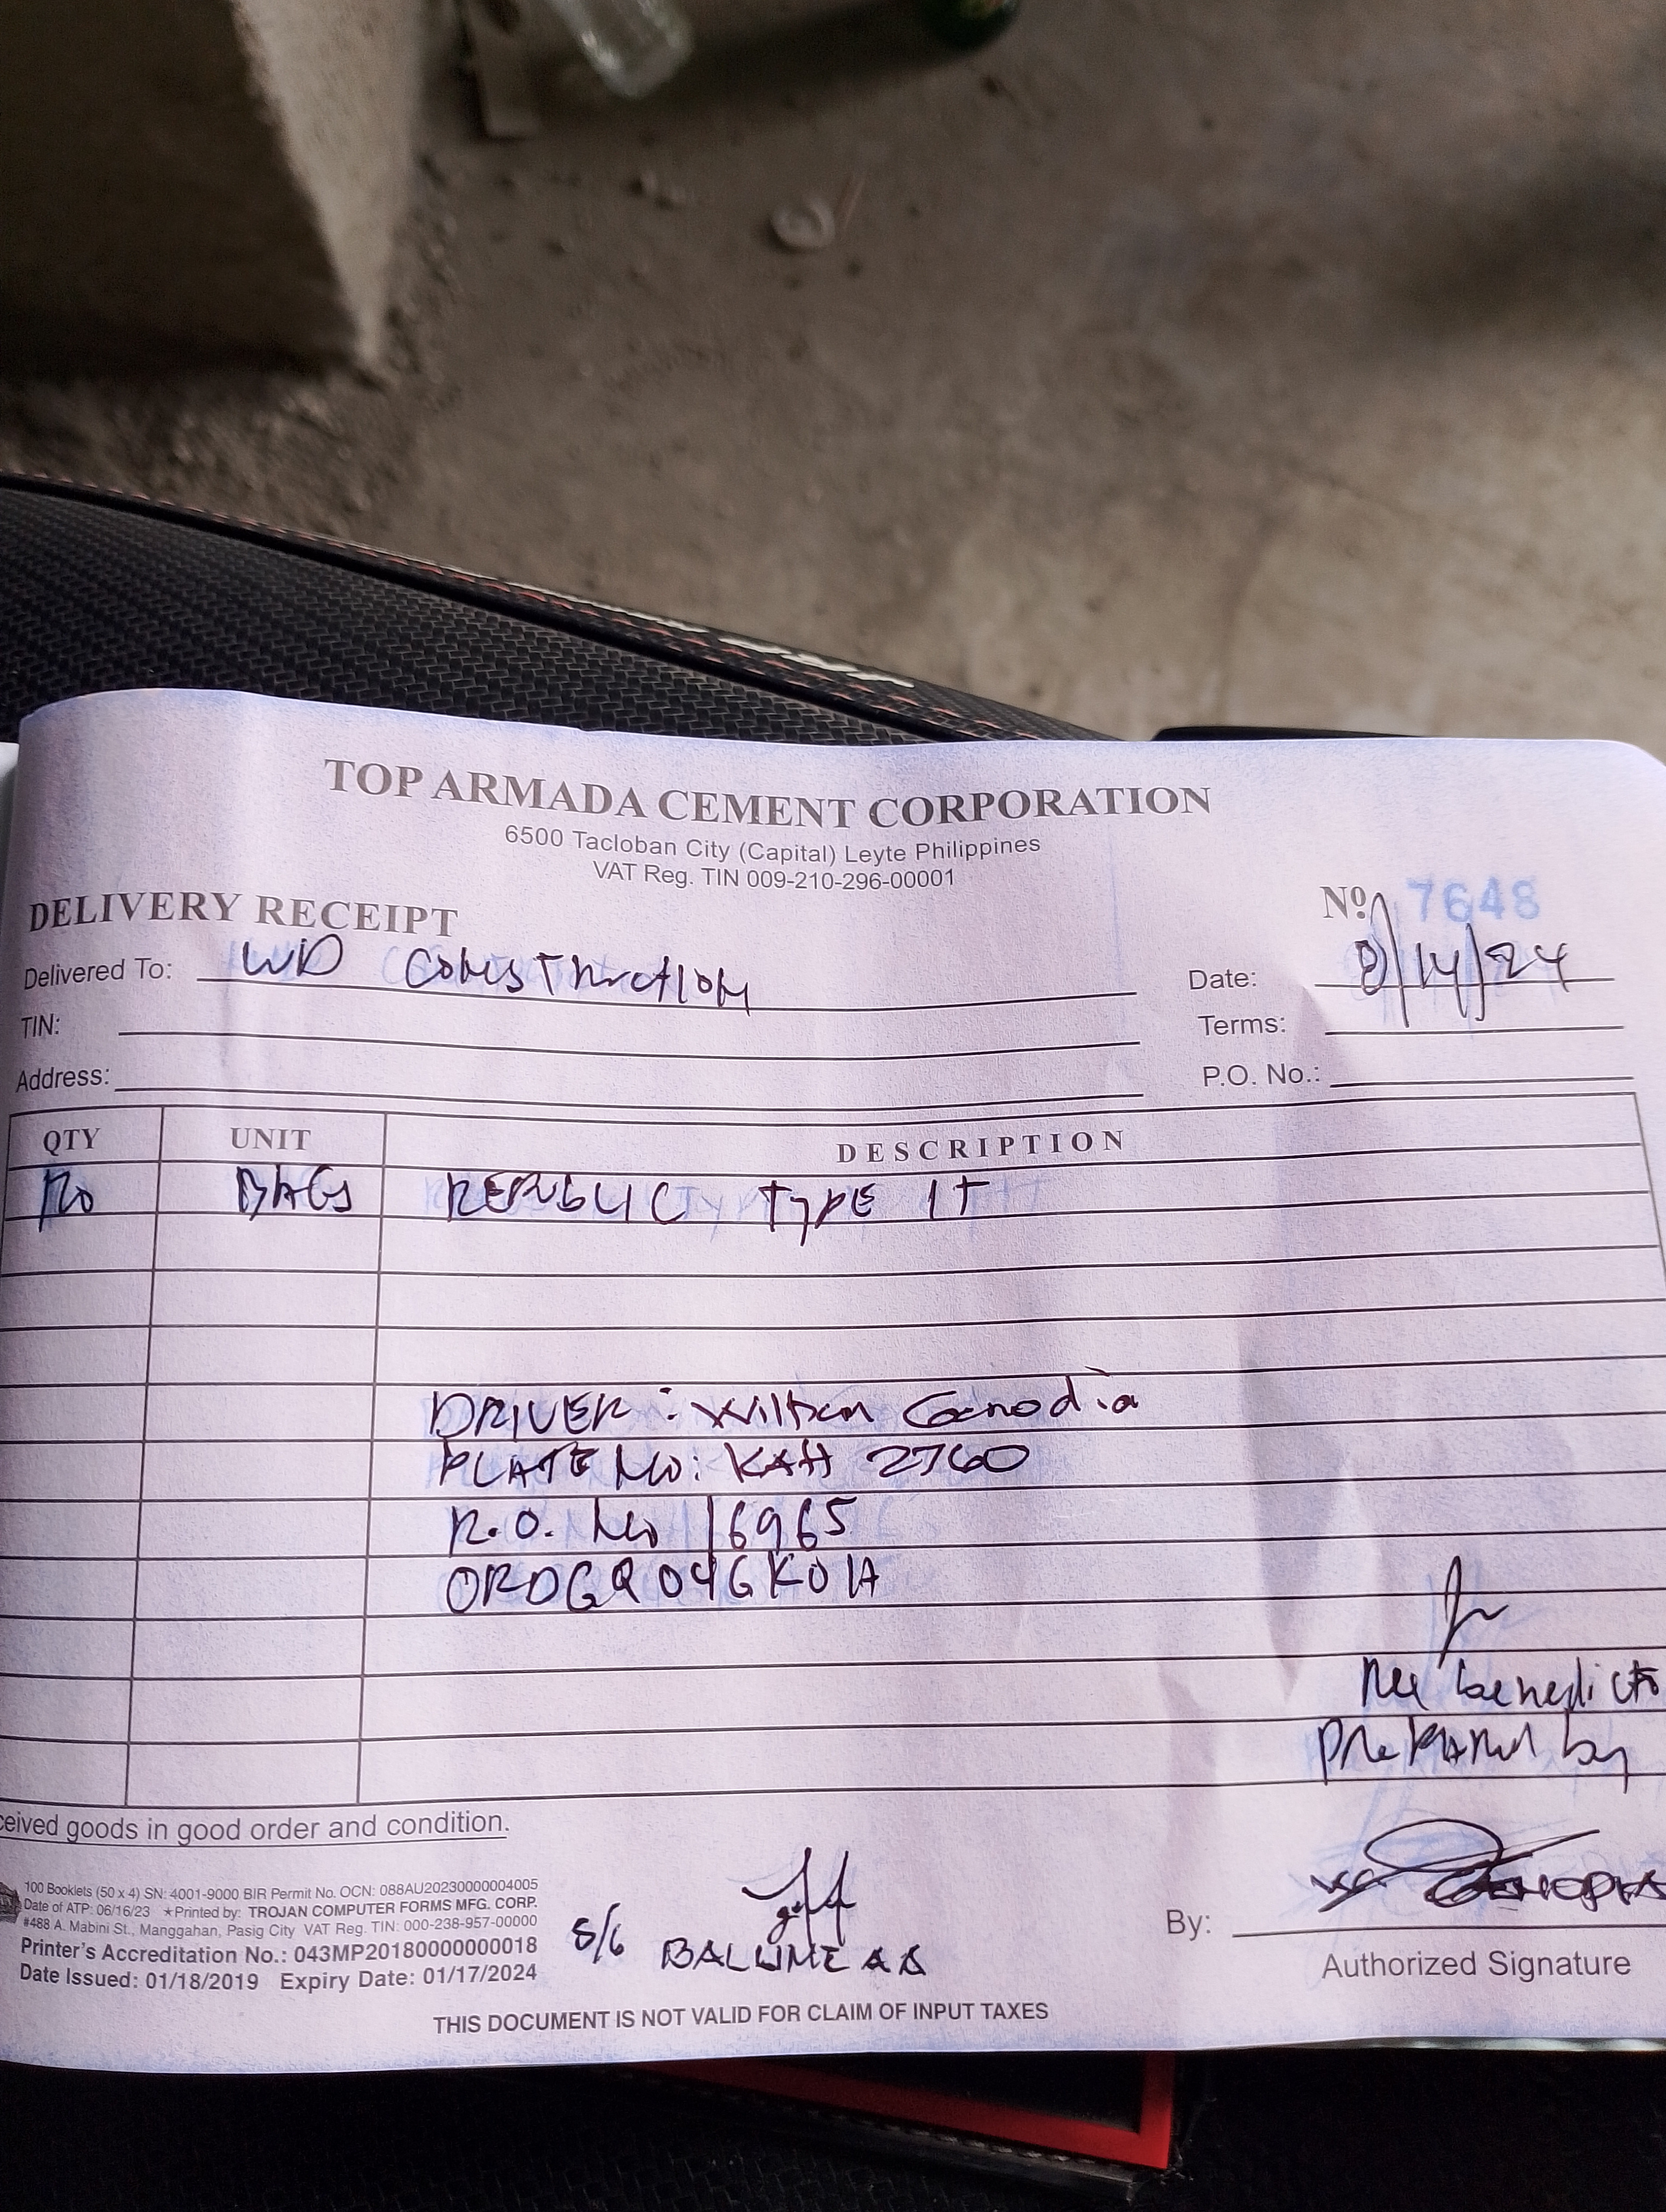 TOP ARMADA CEMENT CORPORATION
6500 Tacloban City (Capital) Leyte Philippines
VAT Reg. TIN 009-210-296-00001
DELIVERY RECEIPT
Nº 7648
Delivered To: WD Construction
Date: 8/14/24
TIN:
Terms:
Address:
P.O. No.:
QTY UNIT DESCRIPTION
BAGS REPUBLIC TYPE 1T
DRIVER: Wilson
PLATE No: KAH 2760
R.O. No 16965
ORDGQ04GK01A
benedicto
prepared by
ceived goods in good order and condition.
100 Booklets (50 x 4) SN: 4001-9000 BIR Permit No. OCN: 088AU20230000004005
Date of ATP: 06/16/23 ★Printed by: TROJAN COMPUTER FORMS MFG. CORP.
#488 A. Mabini St., Manggahan, Pasig City VAT Reg. TIN: 000-238-957-00000
Printer's Accreditation No.: 043MP20180000000018
Date Issued: 01/18/2019 Expiry Date: 01/17/2024
S/G
By:
Authorized Signature
THIS DOCUMENT IS NOT VALID FOR CLAIM OF INPUT TAXES